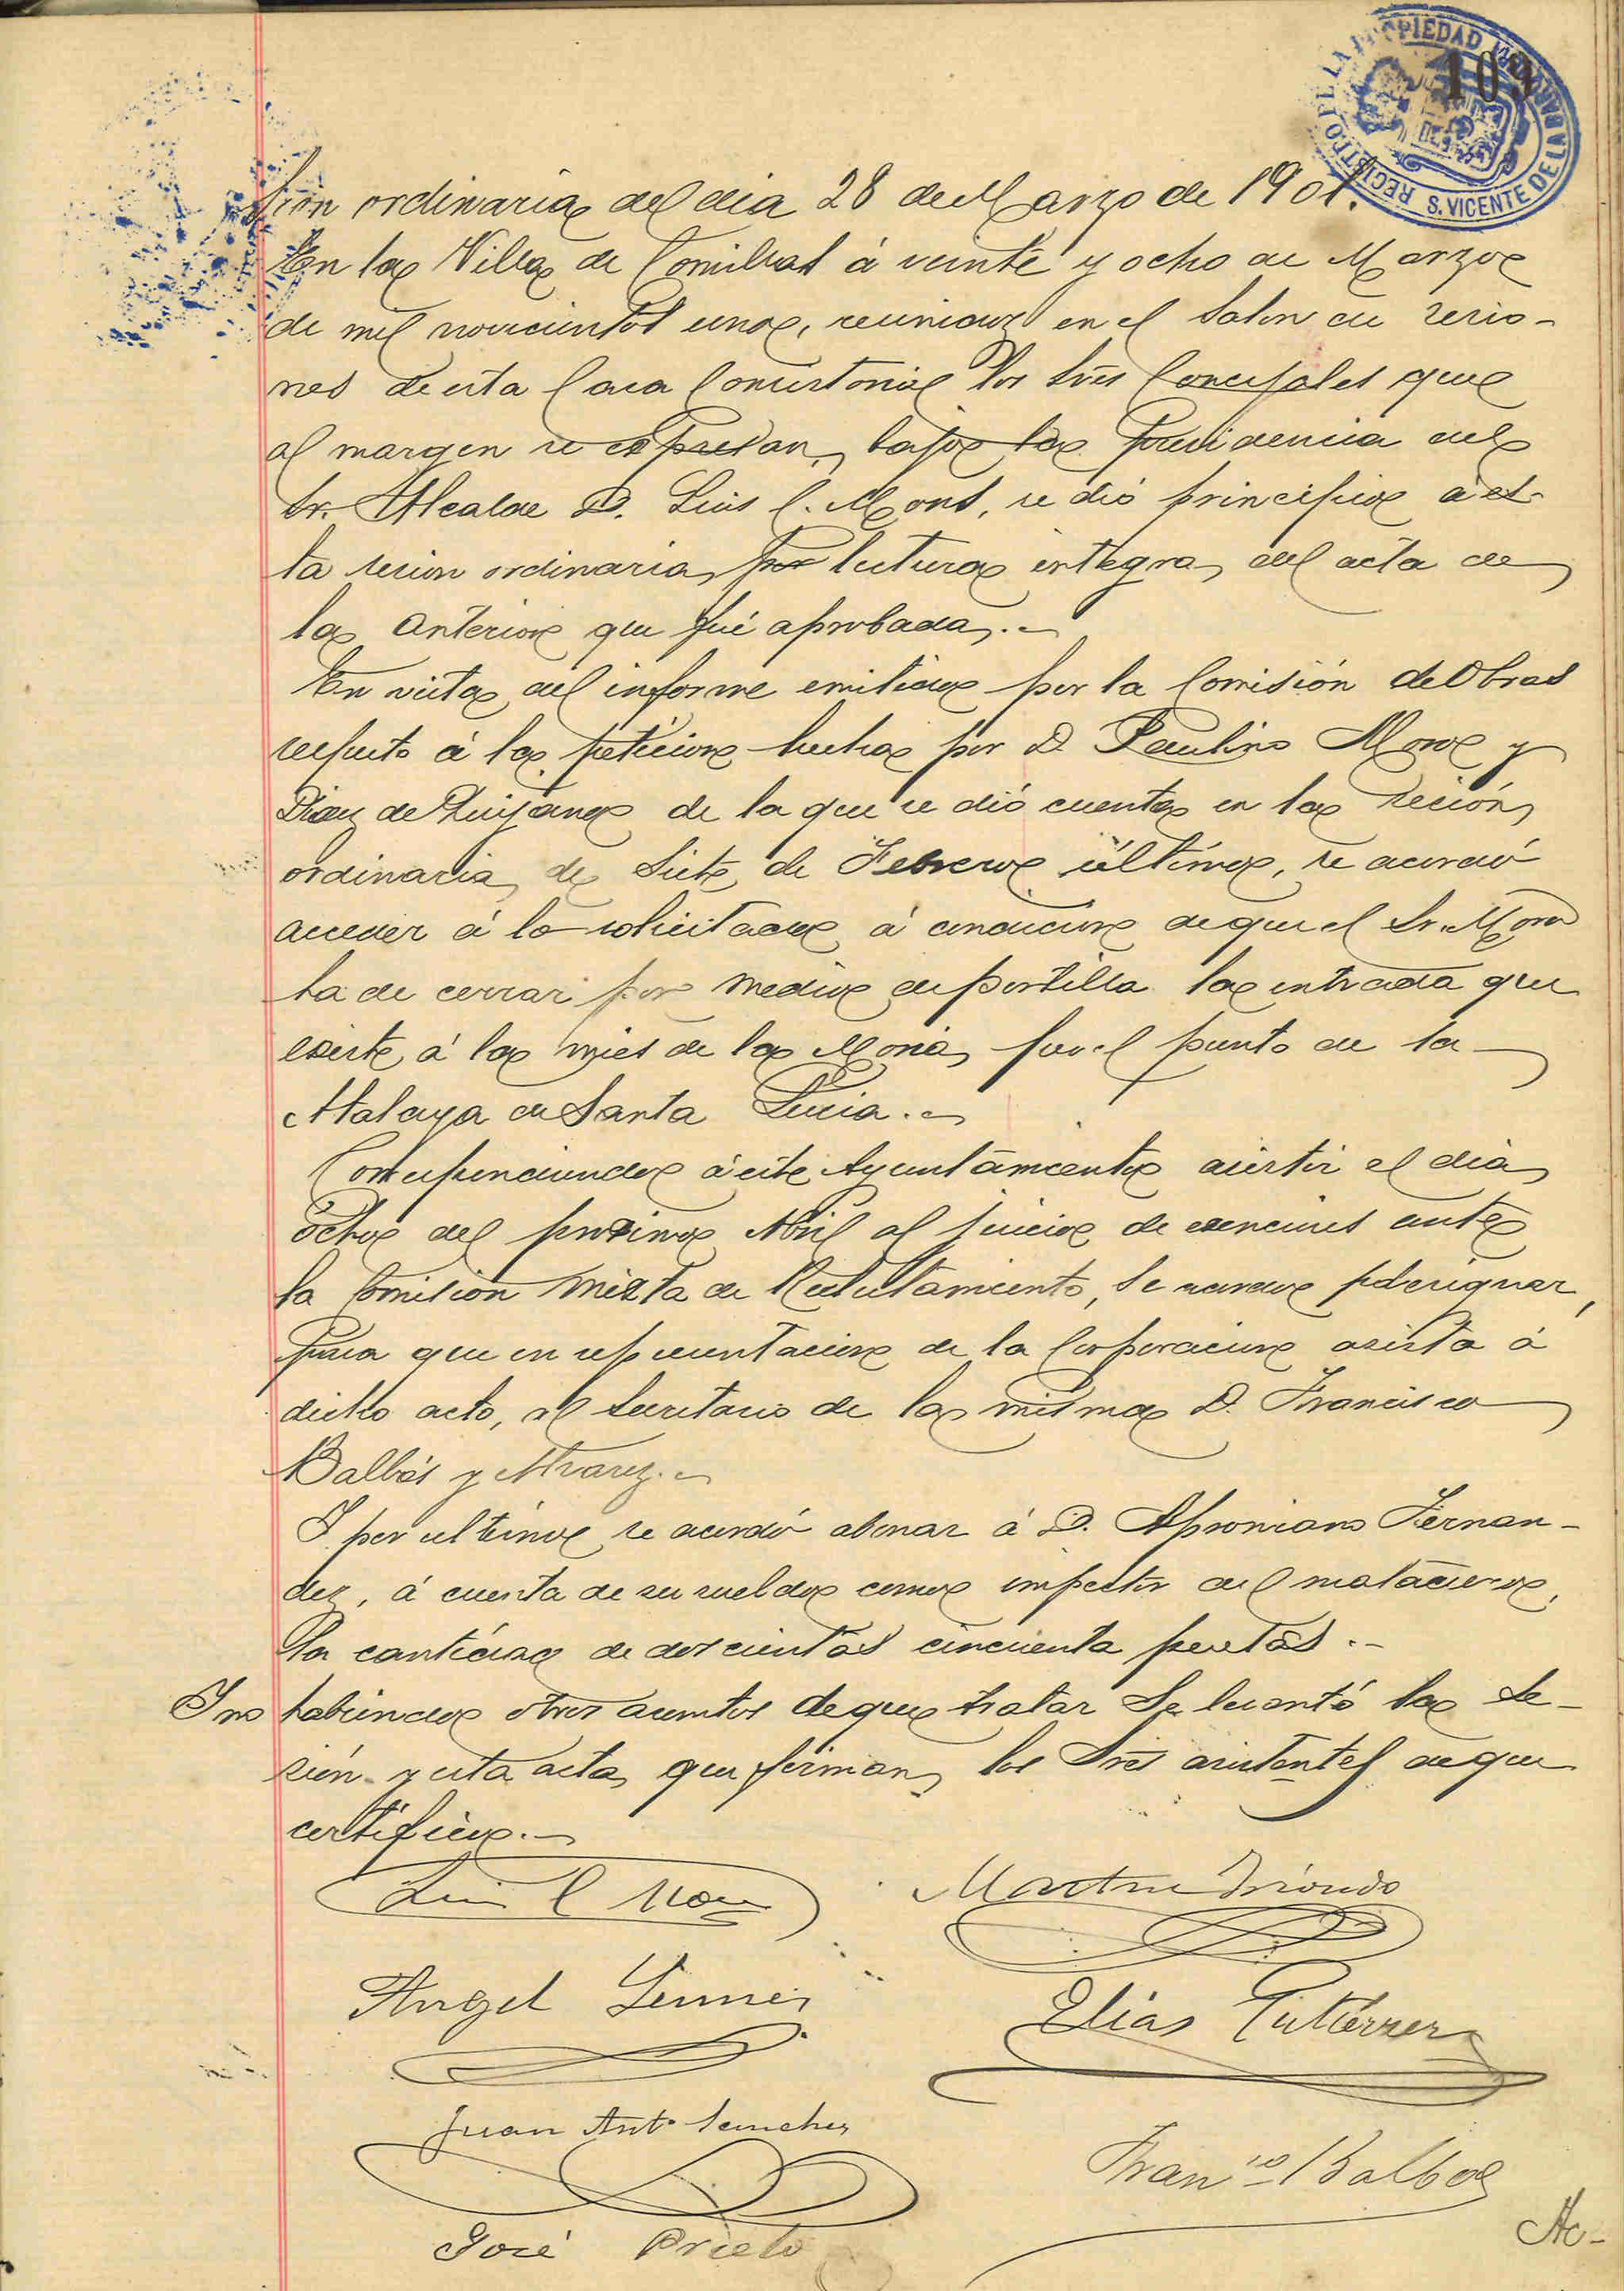 REGISTRO DE LA PROPIEDAD
S. VICENTE DE LA BARQUERA
109
sión ordinaria del dia 28 de Marzo de 1901.
En la Villa de Comillas á veinte y ocho de Marzo
de mil novecientos uno, reunidos en el Salon de sesio-
nes de esta Casa Consistorial los Sres Concejales que
al margen se expresan, bajo la presidencia del
Sr. Alcalde D. Luis C. Mons, se dió principio á es-
ta sesion ordinaria por lectura integra del acta de
la anterior que fué aprobada.
En vista del informe emitido por la Comisión de Obras
respecto á la peticion hecha por D. Paulino Mora y
Diaz de Quijano de la que se dió cuenta en la sesión
ordinaria de Siete de Febrero último, se acordó
acceder á lo solicitado á condicion de que el Sr. Mora
ha de cerrar por medio de portilla la entrada que
existe á la mies de la Moria por el punto de la
Atalaya de Santa Lucia.
Correspondiendo á este Ayuntamiento asistir el dia
ocho del proximo Abril al juicio de exenciones ante
la Comision mixta de Reclutamiento, se acordó designar
para que en representacion de la Corporacion asista á
dicho acto, al Secretario de la misma D. Francisco
Balbás y Alvarez.
Y por ultimo se acordó abonar á D. Aproniano Fernan-
dez, á cuenta de su sueldo como inspector del matadero,
la cantidad de doscientas cincuenta pesetas.
Y no habiendo otros asuntos de que tratar se levantó la se-
sión y esta acta que firman los Sres asistentes de que
certifico.
Luis C Mons
Martin Iñiondo
Angel
Elias Gutierrez
Juan Antº Sanchez
Franco Balbas
José Prieto
Ac-